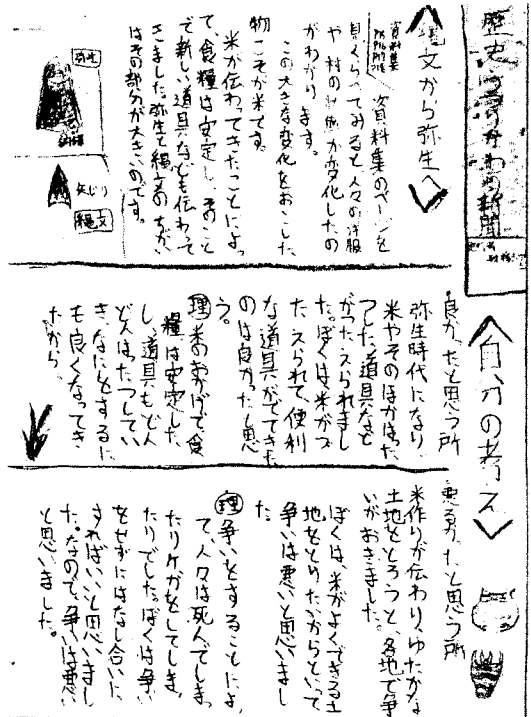 縄文から弥生へ
資料集
資料集のページを
見くらべてみると人々の洋服
や村の
が変化したの
がわかります。
この大きな変化をおこした
物こそが米です。
米が伝わってきたことによっ
て、食糧は安定し、そのこと
で新しい道具なども伝わって
きました。弥生と縄文のちがい
はその部分が大きいのです。
弥生
矢じり
縄文
自分の考え
良かったと思う所
弥生時代になり、
米やそのほかはった
つした道具などが
つたえられまし
た。ぼくは米がつ
たえられて、便利
な道具がでてきた
のは良かったと思
う。
理 米のおかげで、食
糧は安定した
し、道具もどん
どんはったつしてい
き、なにをするに
も良くなってき
たから。
悪るかったと思う所
米作りが伝わり、ゆたかな
土地をとろうと、各地で争
いがおきました。
ぼくは、米がよくできる土
地をとりたいからといって
争いは悪いと思いまし
た。
理 争いをすることによっ
て、人々は死んでしまっ
たりケガをしてしまっ
たりでした。ぼくは争い
をせずにはなし合いに
すればいいと思いまし
た。なので、争いは悪い
と思いました。